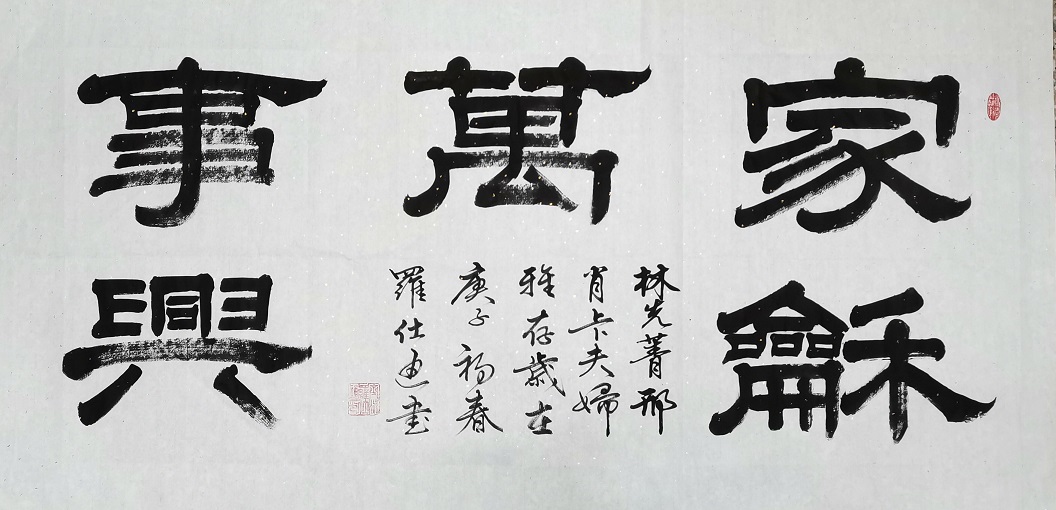 家龢
萬
事興
林先菁邢
肖卡夫婦
雅存歲在
庚子初春
羅仕通书